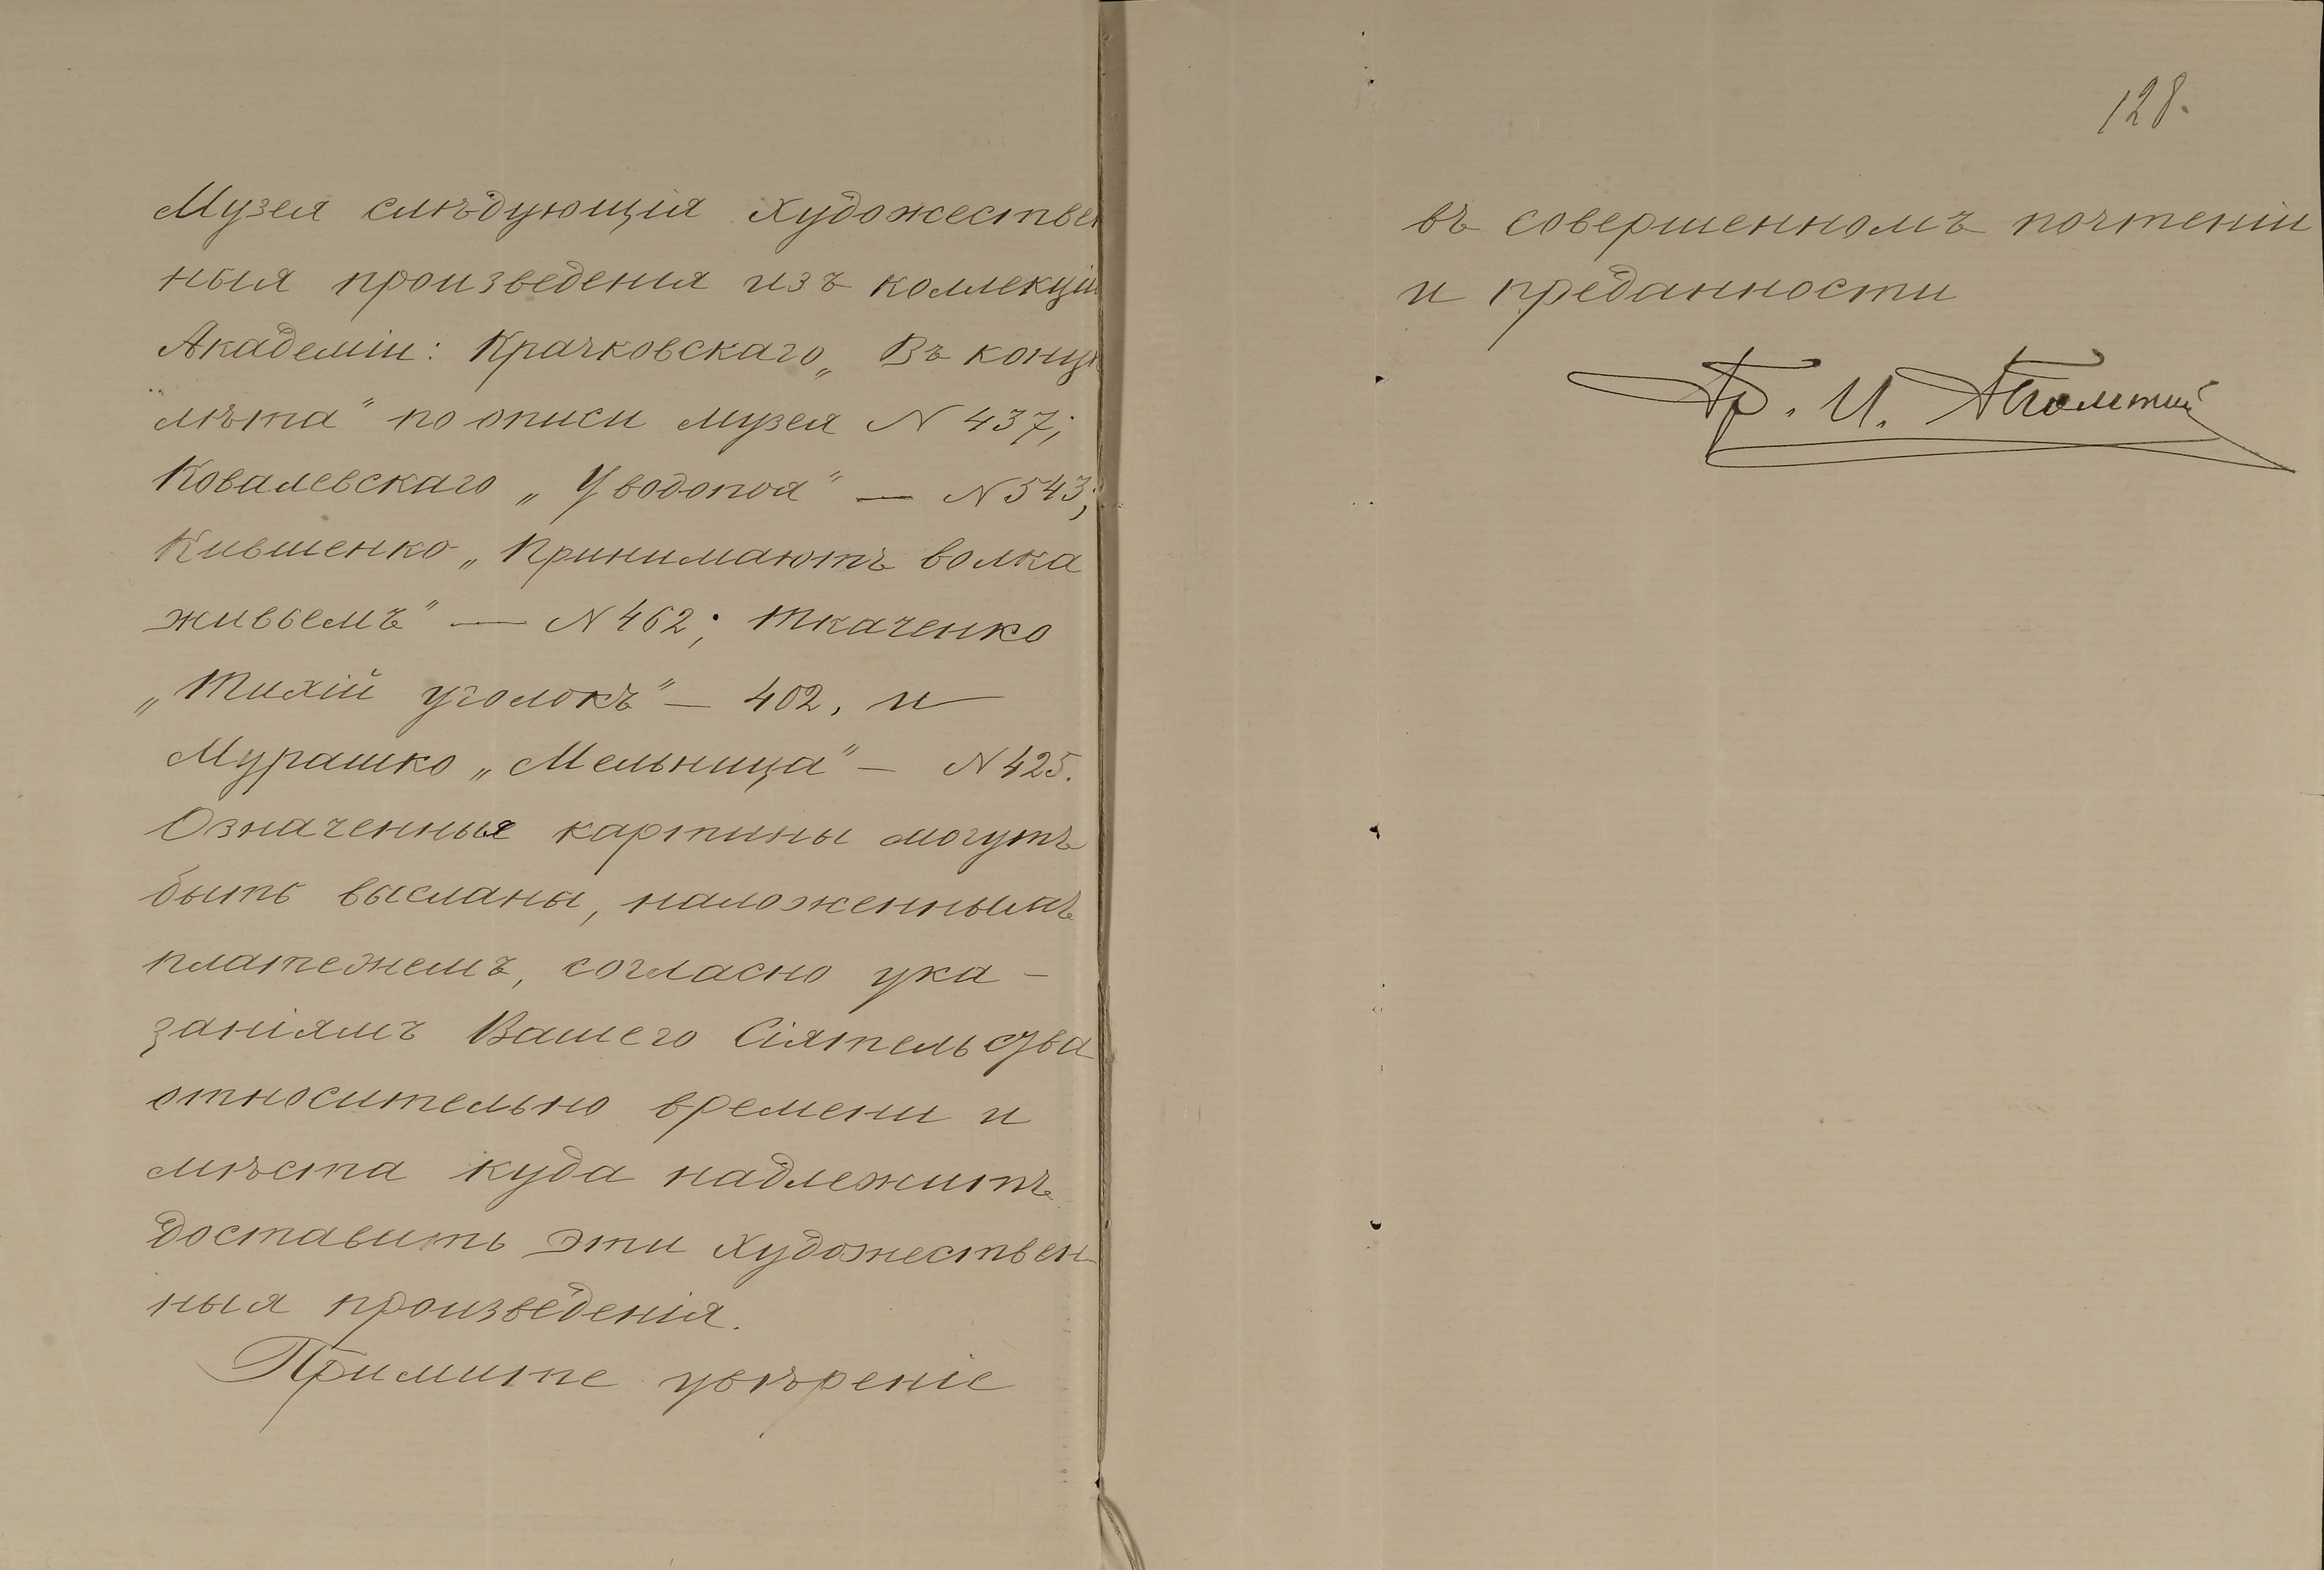 Музея слѣдующія художествен
ныя произведенія изъ коллекціи
Академіи: Крачковскаго „Въ концѣ
лѣта" по описи музея N 437;
Ковалевскаго „У водопоя" — N 543;
Кившенко „Принимаютъ волка
живьемъ" — N 462; Ткаченко
„Тихій уголокъ" — 402, и
Мурашко „Мельница" — N 425.
Означенныя картины могутъ
быть высланы, наложеннымъ
платежемъ, согласно ука-
заніямъ Вашего Сіятельства
относительно времени и
мѣста куда надлежитъ
доставить эти художествен-
ныя произведенія.
Примите увѣреніе
128.
въ совершенномъ почтеніи
и преданности
Гр. И. Толстой